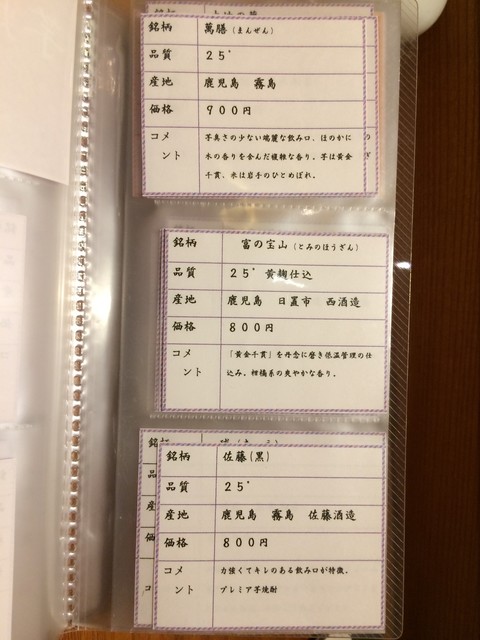 銘柄 萬膳(まんぜん)
品質 25°
産地 鹿児島 霧島
価格 900円
コメント 芋臭さの少ない端麗な飲み口、ほのかに
木の香りを含んだ複雑な香り。芋は黄金
千貫、米は岩手のひとめぼれ。
銘柄 富の宝山(とみのほうざん)
品質 25° 黄麹仕込
産地 鹿児島 日置市 西酒造
価格 800円
コメント 「黄金千貫」を丹念に磨き低温管理の仕
込み。柑橘系の爽やかな香り。
銘柄 佐藤(黒)
品質 25°
産地 鹿児島 霧島 佐藤酒造
価格 800円
コメント 力強くてキレのある飲み口が特徴。
プレミア芋焼酎